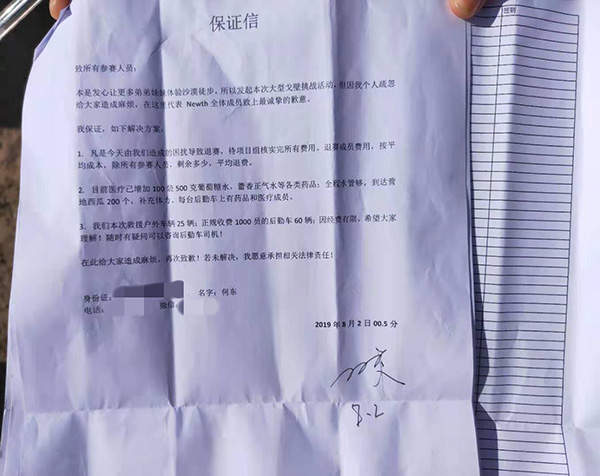 保证信
致所有参赛人员:
本是发心让更多弟弟妹妹体验沙漠徒步,所以发起本次大型戈壁挑战活动,但因我个人疏忽
给大家造成麻烦,在这里代表 Newth 全体成员致上最诚挚的歉意。
我保证,如下解决方案:
1. 凡是今天由我们造成的困扰导致退赛,待项目组核实完所有费用。退赛成员费用,按平
均成本,除所有参赛人员,剩余多少,平均退费。
2. 目前医疗已增加 100 袋 500 克葡萄糖水、藿香正气水等各类药品;全程水管够,到达营
地西瓜 200 个,补充体力,每台后勤车上有药品和医疗成员。
3. 我们本次救援户外车辆 25 辆;正规收费 1000 员的后勤车 60 辆;因经费有限,希望大家
理解!随时有疑问可以咨询后勤车司机!
在此给大家造成麻烦,再次致歉!若未解决,我愿意承担相关法律责任!
身份证: 名字:何东
电话: 微信
2019 年 8 月 2 日 00.5 分
8.2
签到